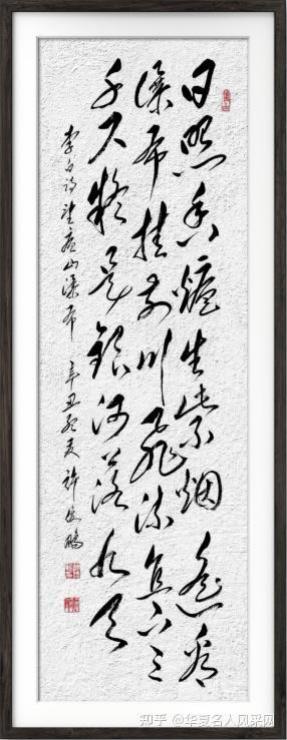 日照香爐生紫烟遥看
瀑布挂前川飞流直下三
千尺疑是銀河落九天
李白诗望庐山瀑布 辛丑初夏 许
知乎 @华夏名人风采网